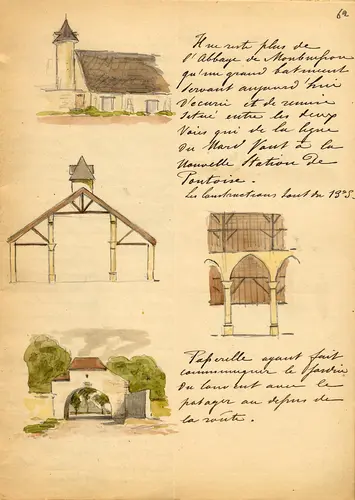 62
Il ne reste plus de
l'Abbaye de Maubuisson
qu'un grand batiment
servant aujourd'hui
d'écurie et de remise
situé entre les deux
voies qui de la ligne
du Nord vont à la
nouvelle Station de
Pontoise.
Les Constructions sont du 13e S.
ayant fait
communiquer le Jardin
du couvent avec le
potager au depus de
la route.